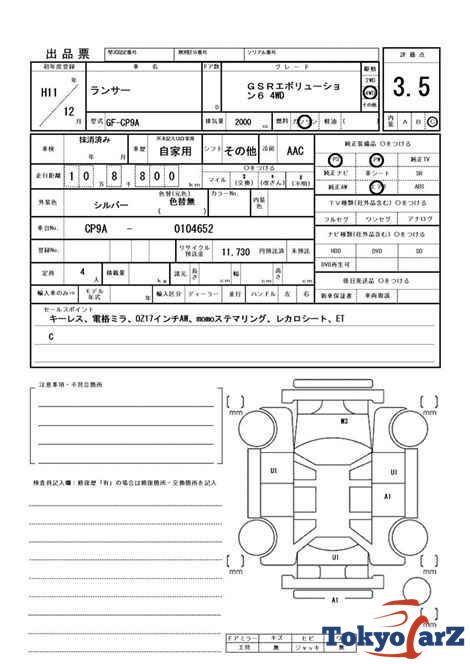 出品票 型式認定番号 類別区分番号 シリアル番号
初年度登録 車名 ドア数 グレード 駆動 評価点
H11 年 12 月
ランサー D GSRエボリューション6 4WD
2WD 4WD その他
3.5
型式 GF-CP9A 排気量 2000 cc 燃料 ガソリン 軽油 ( ) 内装 A B C
車検 抹消済み 年 月 車歴 自家用 シフト その他 冷房 AAC
走行距離 10万8千800km マイル (交換) (改ざん) (不明)
外装色 シルバー 色替(元色) 色替無 ( ) カラーNo. 内装色
車台No. CP9A - 0104652
登録No. リサイクル預託金 11,730 円預託済 未預託
定員 4人 積載量 kg 諸元 長さ cm 幅 cm 高さ cm
輸入車のみ⇒ モデル年式 年 輸入区分 ディーラー 並行 ハンドル 左 右
純正装備品 ○をつける
PS PW 純正TV
純正ナビ 革シート SR
純正AW エアB ABS
TV種類(社外品含む) ○をつける
フルセグ ワンセグ アナログ
ナビ種類(社外品含む) ○をつける
HDD DVD SD
DVD再生可
後日発送品 ○をつける
新車保証書 車両取説
セールスポイント
キーレス、電格ミラ、OZ17インチAW、momoステアリング、レカロシート、ET
C
注意事項・不具合箇所
検査員記入欄:修復歴「有」の場合は修復箇所・交換箇所を記入
mm mm
W3
U1 U1
A1
U1
mm mm
A1
ドアミラー キズ ヒビ ワレ
工具 無 ジャッキ 無
TokyoCarZ